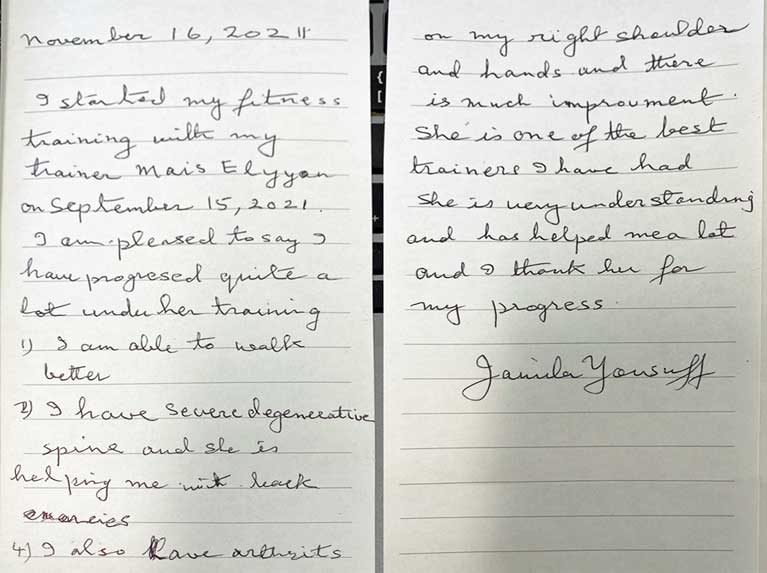 November 16, 2021
I started my fitness
training with my
trainer Mais Elyyan
on September 15, 2021.
I am pleased to say I
have progresed quite a
lot under her training
1) I am able to walk
better
2) I have severe degenerative
spine and she is
helping me with back
exercies
4) I also have arthrits
on my right shoulder
and hands and there
is much improvment.
She is one of the best
trainers I have had
She is very understanding
and has helped me a lot
and I thank her for
my progress.
Jamila Yousuff